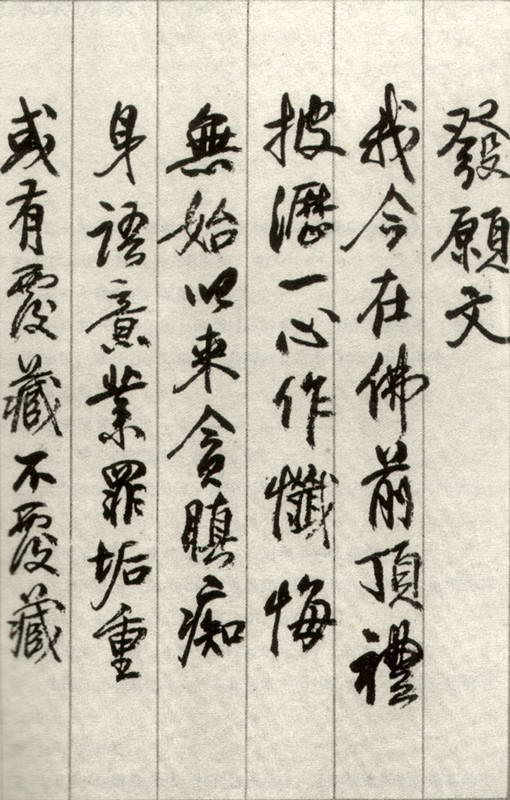 發願文
我今在佛前頂禮
披瀝一心作懺悔
無始以來貪瞋痴
身語意業罪垢重
或有覆藏不覆藏